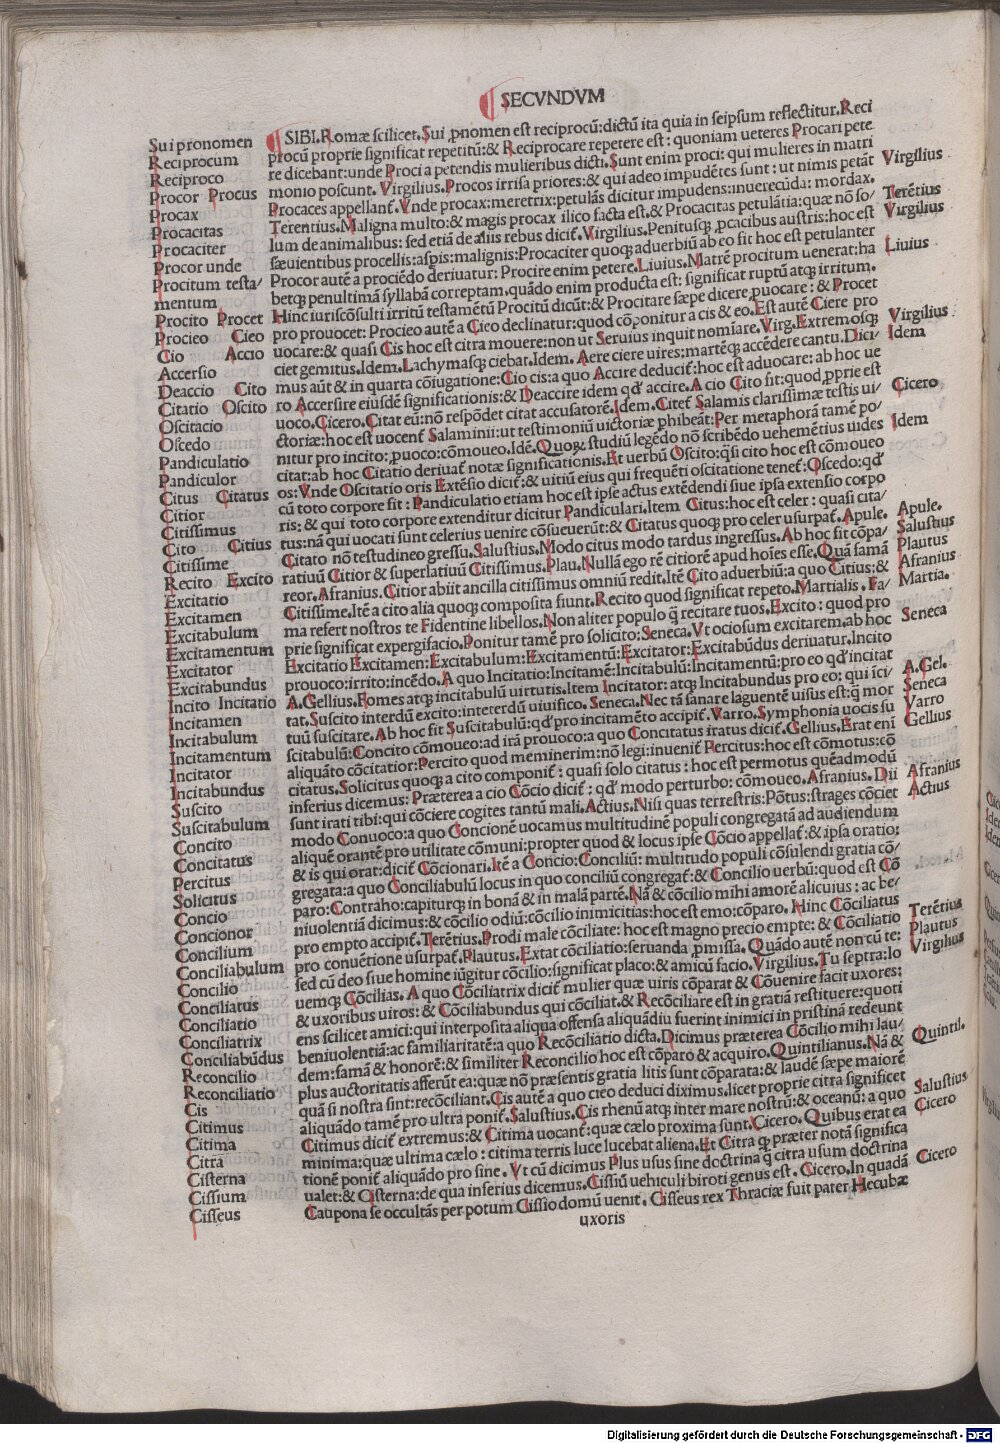 SECVNDVM
Sui pronomen
Reciprocum
Reciproco
Procor Procus
Procax
Procacitas
Procaciter
Procor unde
Procitum testa/
mentum
Procito Procet
Procieo Cieo
Cio Accio
Accersio
Deaccio Cito
Citatio Oscito
Oscitacio
Oscedo
Pandiculatio
Pandiculor
Citus Citatus
Citior
Citissimus
Cito Citius
Citissime
Recito Excito
Excitatio
Excitamen
Excitabulum
Excitamentum
Excitator
Excitabundus
Incito Incitatio
Incitamen
Incitabulum
Incitamentum
Incitator
Incitabundus
Suscito
Suscitabulum
Concito
Concitatus
Percitus
Solicitus
Concio
Concionor
Concilium
Conciliabulum
Concilio
Conciliatus
Conciliatio
Conciliatrix
Conciliabūdus
Reconcilio
Reconciliatio
Cis
Citimus
Citima
Citra
Cisterna
Cissium
Cisseus
SIBI.Romæ scilicet.Sui ꝓnomen est reciprocū:dictū ita quia in seipsum reflectitur.Reci
procū proprie significat repetitū:& Reciprocare repetere est: quoniam ueteres Procari pete
re dicebant:unde Proci a petendis mulieribus dicti.Sunt enim proci: qui mulieres in matri
monio poscunt. Virgilius.Procos irrisa priores:& qui adeo impudētes sunt: ut nimis petāt
Procaces appellant̃.Vnde procax:meretrix:petulās dicitur impudens:inuerecūda: mordax.
Terentius.Maligna multo:& magis procax ilico facta est.& Procacitas petulātia:quæ nō so/
lum de animalibus: sed etiā de aliis rebus dicit̃.Virgilius.Penitusq; ꝓcacibus austris:hoc est
sæuientibus procellis:aspis:malignis:Procaciter quoq; aduerbiū ab eo fit hoc est petulanter
Procor autē a prociēdo deriuatur: Procire enim petere.Liuius.Matrē procitum uenerat:ha
betq; penultimā syllabā correptam.quādo enim producta est: significat ruptū atq; irritum.
Hinc iuriscōsulti irritū testamētū Procitū dicūt:& Procitare sæpe dicere ꝓuocare: & Procet
pro prouocet: Procieo autē a Cieo declinatur:quod cōponitur a cis & eo.Est autē Ciere pro
uocare:& quasi Cis hoc est citra mouere:non ut Seruius inquit nomiare.Virg.Extremosq;
ciet gemitus.Idem.Lachymasq; ciebat.Idem. Aere ciere uires:martēq; accēdere cantu.Dici/
mus aūt & in quarta cōiugatione:Cio cis:a quo Accire deducit̃:hoc est aduocare: ab hoc ue
ro Accersire eiusdē significationis:& Deaccire idem qd̓ accire.A cio Cito fit:quod ꝓprie est
uoco.Cicero.Citat eū:nō respōdet citat accusatorē.Idem.Citet̃ Salamis clarissimæ testis ui/
ctoriæ:hoc est uocent̃ Salaminii:ut testimoniū uictoriæ phibeāt:Per metaphorā tamē po/
nitur pro incito:ꝓuoco:cōmoueo.Idē.Quoꝝ studiū legēdo nō scribēdo uehemētius uides
citat:ab hoc Citatio deriuat̃ notæ significationis.Et uerbū Oscito:q̄si cito hoc est cōmoueo
os:Vnde Oscitatio oris Extēsio dicit̃:& uitiū eius qui frequēti oscitatione tenet̃:Oscedo:qd̓
cū toto corpore fit: Pandiculatio etiam hoc est ipse actus extēdendi siue ipsa extensio corpo
ris: & qui toto corpore extenditur dicitur Pandiculari.Item Citus:hoc est celer: quasi cita/
tus:nā qui uocati sunt celerius uenire cōsueuerūt:& Citatus quoq; pro celer usurpat̃.Apule.
Citato nō testudineo gressu.Salustius.Modo citus modo tardus ingressus.Ab hoc fit cōpa/
ratiuū Citior & superlatiuū Citissimus.Plau.Nullā ego rē citiorē apud hoies esse.Quā famā
reor.Afranius.Citior abiit ancilla citissimus omniū redit.Itē Cito aduerbiū:a quo Citius:&
Citissime.Itē a cito alia quoq; composita fiunt.Recito quod significat repeto.Martialis. Fa/
ma refert nostros te Fidentine libellos.Non aliter populo q̄ recitare tuos.Excito: quod pro
prie significat expergifacio.Ponitur tamē pro solicito:Seneca.Vt ociosum excitarem.ab hoc
Excitatio Excitamen:Excitabulum:Excitamentū:Excitator:Excitabūdus deriuatur.Incito
prouoco:irrito:incēdo.A quo Incitatio:Incitamē:Incitabulū:Incitamentū:pro eo qd̓ incitat
A.Gellius.Fomes atq; incitabulū uirtutis.Item Incitator: atq; Incitabundus pro eo: qui ici/
tat.Suscito interdū excito:inteterdū uiuifico. Seneca.Nec tā sanare laguentē uisus est:q̄ mor
tuū suscitare.Ab hoc fit Suscitabulū:qd̓ pro incitamēto accipit̃.Varro.Symphonia uocis su
scitabulū:Concito cōmoueo:ad irā prouoco:a quo Concitatus iratus dicit̃.Gellius.Erat enī
aliquāto cōcitatior:Percito quod meminerim:nō legi:inuenit̃ Percitus:hoc est cōmotus:cō
citatus.Solicitus quoq; a cito componit̃: quasi solo citatus: hoc est permotus quēadmodū
inferius dicemus: Præterea a cio Cōcio dicit̃: qd̓ modo perturbo: cōmoueo.Afranius. Dii
sunt irati tibi:qui cōciere cogites tantū mali.Actius.Nisi quas terrestris:Pōtus:strages cōciet
modo Conuoco:a quo Concionē uocamus multitudinē populi congregatā ad audiendum
aliquē orantē pro utilitate cōmuni:propter quod & locus ipse Cōcio appellat̃:& ipsa oratio:
& is qui orat:dicit̃ Cōcionari.Itē a Concio:Conciliū: multitudo populi cōsulendi gratia cō/
gregata:a quo Conciliabulū locus in quo conciliū congregat̃:& Concilio uerbū:quod est Cō
paro:Contraho:capiturq; in bonā & in malā partē.Nā & cōcilio mihi amorē alicuius: ac be/
niuolentiā dicimus:& cōcilio odiū:cōcilio inimicitias:hoc est emo:cōparo. Hinc Cōciliatus
pro empto accipit̃.Terētius.Prodi male cōciliate: hoc est magno precio empte: & Cōciliatio
pro conuētione usurpat̃.Plautus.Extat cōciliatio:seruanda ꝓmissa. Quādo autē non cū te:
sed cū deo siue homine iūgitur cōcilio:significat placo:& amicū facio.Virgilius. Tu septra:Io
uemq; Cōcilias. A quo Cōciliatrix dicit̃ mulier quæ uiris cōparat & Cōuenire facit uxores:
& uxoribus uiros: & Cōciliabundus qui cōciliat.& Recōciliare est in gratiā restituere:quoti
ens scilicet amici:qui interposita aliqua offensa aliquādiu fuerint inimici in pristinā redeunt
beniuolentiā:ac familiaritatē:a quo Recōciliatio dicta.Dicimus præterea Cōcilio mihi lau/
dem:famā & honorē:& similiter Reconcilio hoc est cōparo & acquiro.Quintilianus.Nā &
plus auctoritatis afferūt ea:quæ nō præsentis gratia litis sunt cōparata:& laudē sæpe maiorē
quā si nostra sint:recōciliant.Cis autē a quo cieo deduci diximus.licet proprie citra significet
aliquādo tamē pro ultra ponit̃.Salustius.Cis rhenū atq; inter mare nostrū:& oceanū: a quo
Citimus dicit̃ extremus:& Citima uocant̃:quæ cælo proxima sunt.Cicero. Quibus erat ea
minima:quæ ultima cælo: citima terris luce lucebat aliena.Et Citra qꝫ præter notā significa
tionē ponit̃ aliquādo pro sine.Vt cū dicimus Plus usus sine doctrina q̄ citra usum doctrina
ualet:& Cisterna:de qua inferius dicemus.Cissiū uehiculi biroti genus est. Cicero.In quadā
Caupona se occultās per potum Cissio domū uenit. Cisseus rex Thraciæ fuit pater Hecubæ
uxoris
Virgilius
Terētius
Virgilius
Liuius
Virgilius
Idem
Cicero
Idem
Apule.
Salustius
Plautus
Afranius
Martia.
Seneca
A.Gel.
Seneca
Varro
Gellius
Afranius
Actius
Terētius
Plautus
Virgilius
Quintil.
Salustius
Cicero
Cicero
Digitalisierung gefördert durch die Deutsche Forschungsgemeinschaft - DFG